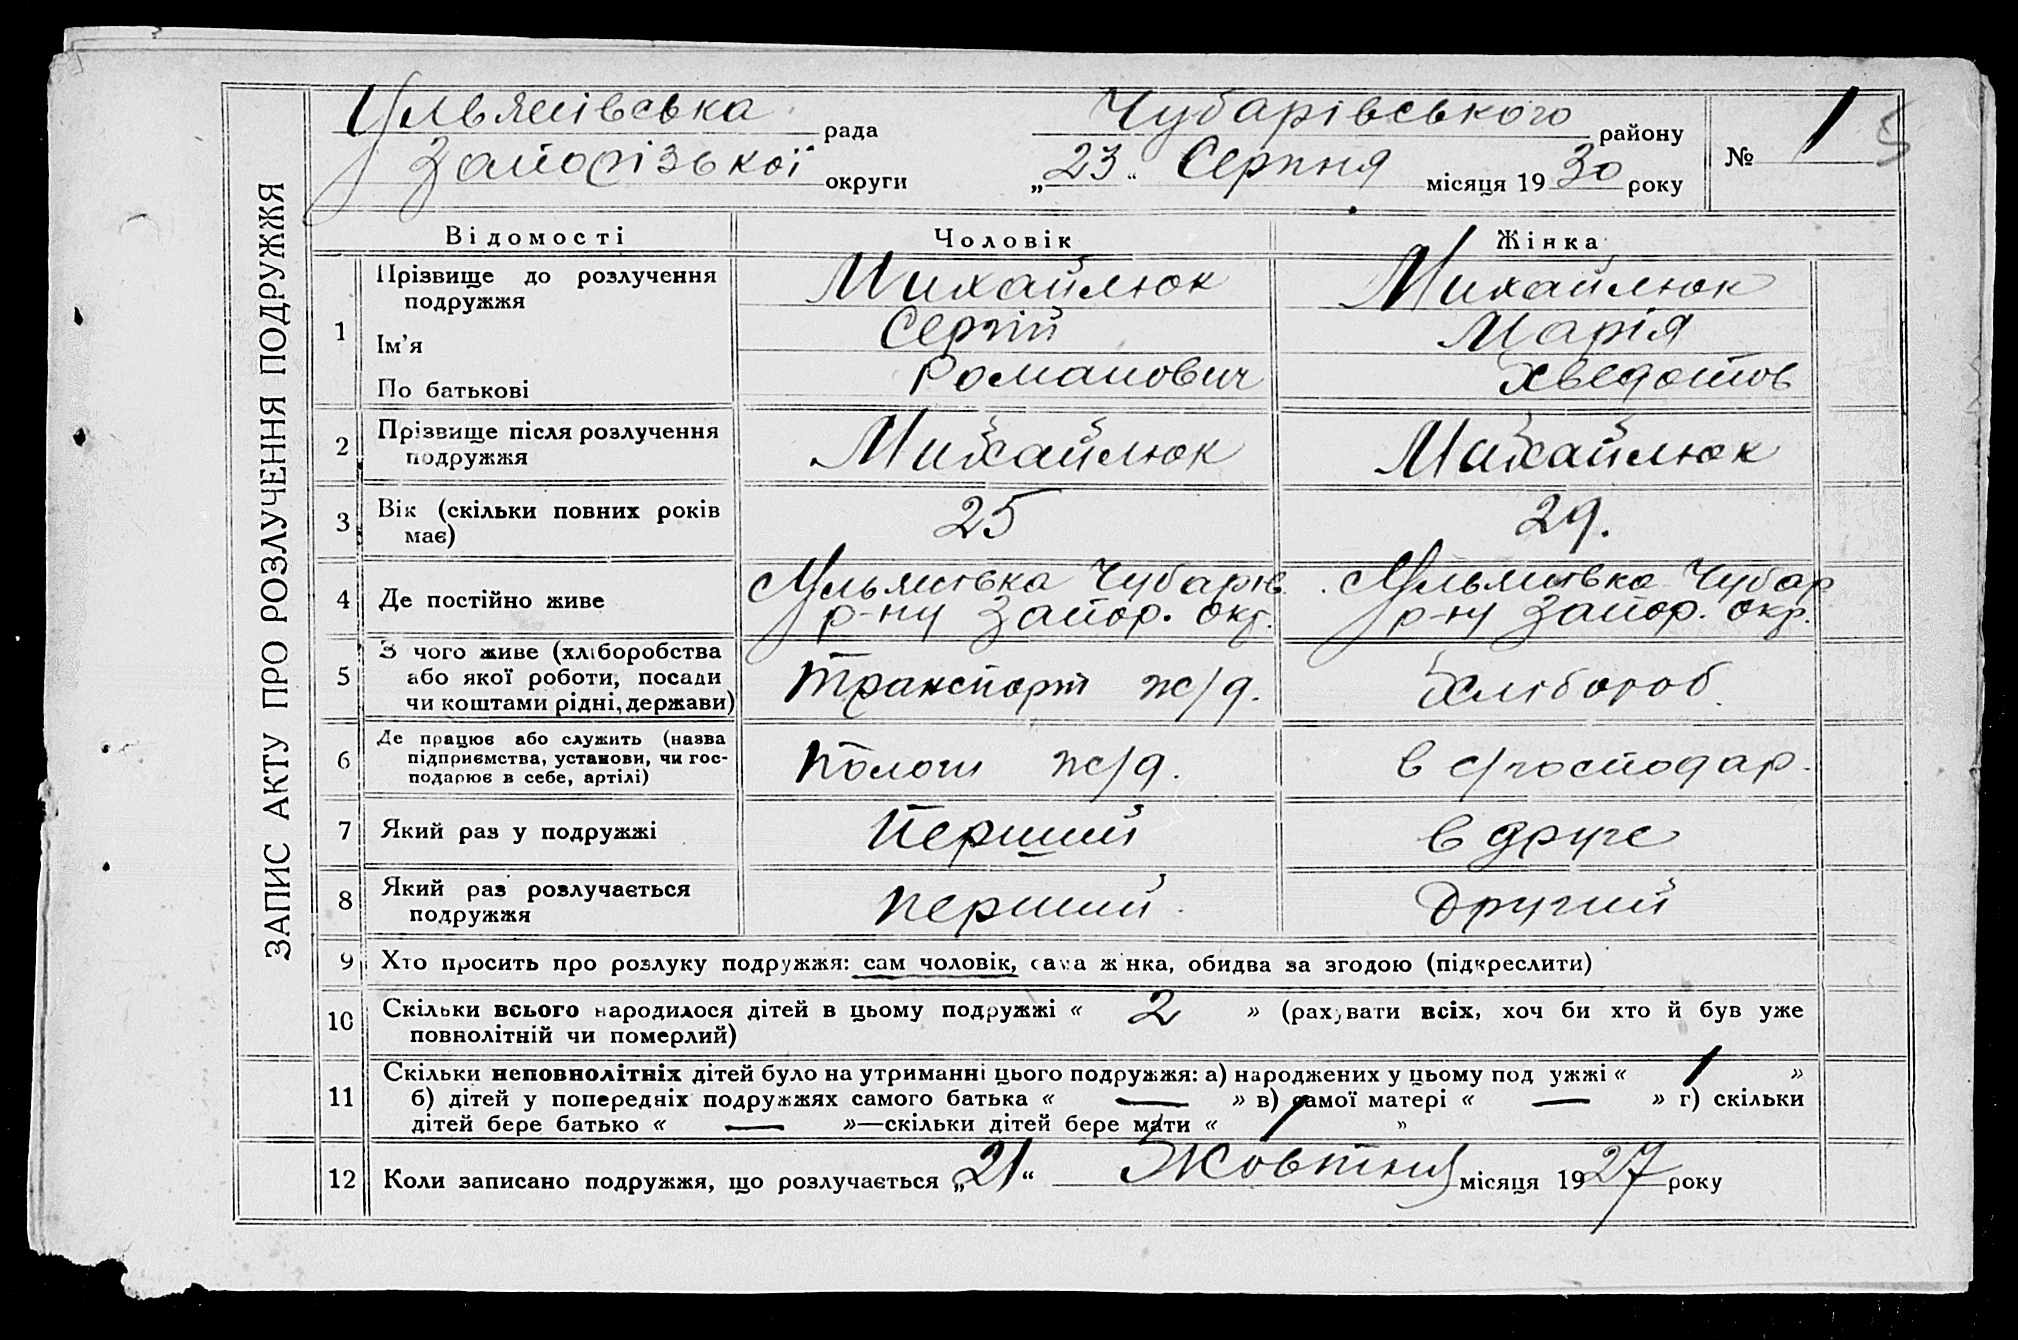 ЗАПИС АКТУ ПРО РОЗЛУЧЕННЯ ПОДРУЖЖЯ
Ульянівська рада Чубарівського району № 1
Запорізької округи „23“ Серпня місяця 1930 року
Відомості Чоловік Жінка
1 Прізвище до розлучення подружжя Михайлюк Михайлюк
Ім’я Сергій Марія
По батькові Романович Хведотов
2 Прізвище після розлучення подружжя Михайлюк Михайлюк
3 Вік (скільки повних років має) 25 29.
4 Де постійно живе Ульянівка Чубарів. Ульянівка Чубар
р-ну Запор. окр. р-ну Запор. окр.
5 З чого живе (хліборобства Транспорт ж/д. Хлібороб.
або якої роботи, посади
чи коштами рідні, держави)
6 Де працює або служить (назва Пологи ж/д. в с/господар.
підприємства, установи, чи гос-
подарює в себе, артілі)
7 Який раз у подружжі Перший в друге
8 Який раз розлучається подружжя перший Другий
9 Хто просить про розлуку подружжя: сам чоловік, сама жінка, обидва за згодою (підкреслити)
10 Скільки всього народилося дітей в цьому подружжі « 2 » (рахувати всіх, хоч би хто й був уже
повнолітній чи померлий)
11 Скільки неповнолітніх дітей було на утриманні цього подружжя: а) народжених у цьому подружжі « 1 »
б) дітей у попередніх подружжях самого батька « — » в) самої матері « — » г) скільки
дітей бере батько « — »—скільки дітей бере мати « 1 »
12 Коли записано подружжя, що розлучається „21“ Жовтня місяця 1927 року